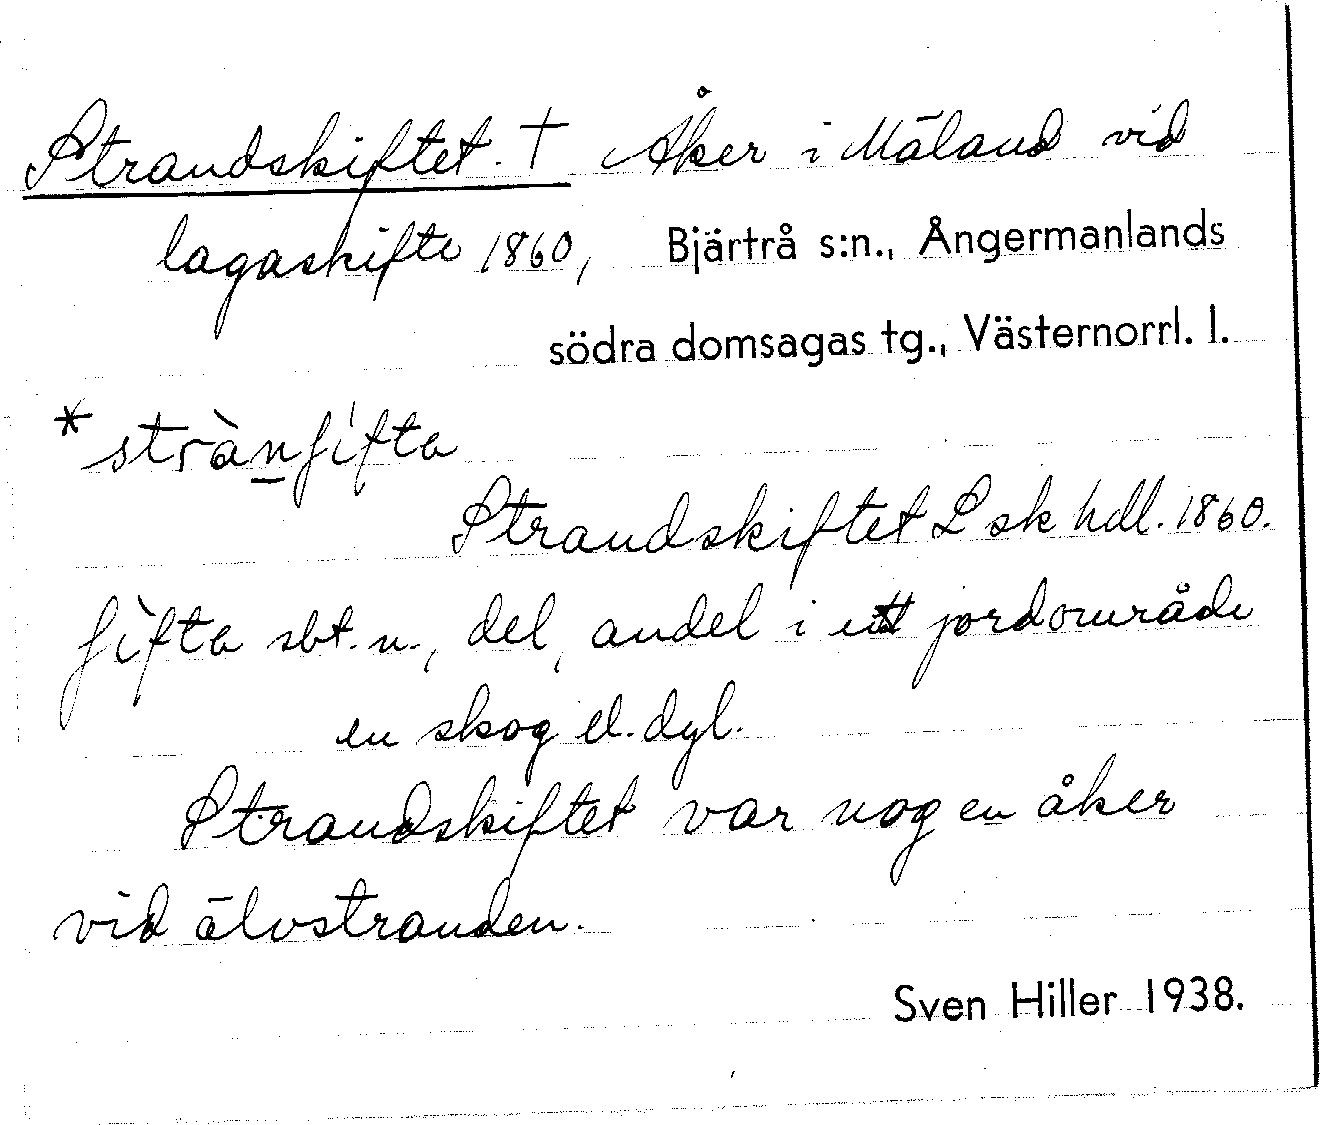 Strandskiftet. † Åker i Mäland vid
lagaskifte 1860, Bjärtrå s:n., Ångermanlands
södra domsagas tg., Västernorrl. l.
*strànʃifta
Strandskiftet L sk hdl. 1860.
ʃìfta sbt. n., del, andel i ett jordområde
en skog el. dyl.
Strandskiftet var nog en åker
vid älvstranden.
Sven Hiller 1938.